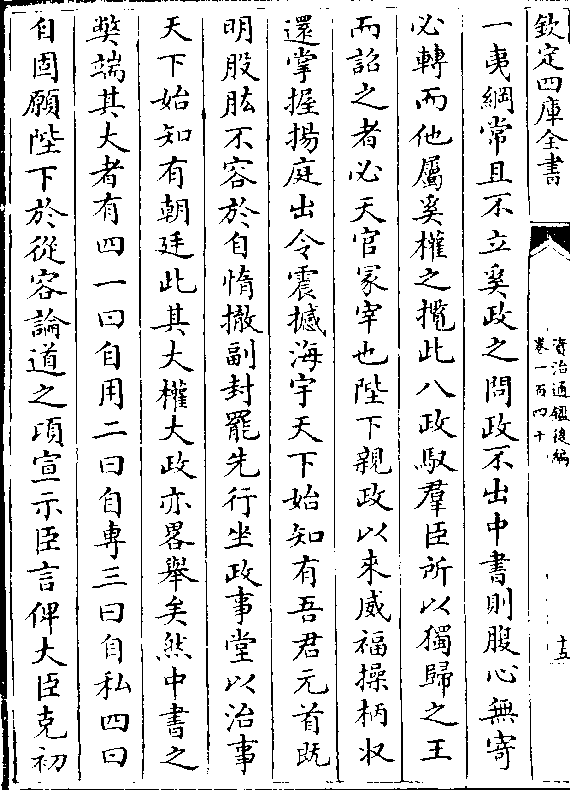 欽定四庫全書
資治通鑑後編
卷一百四十
十五
一夷綱常且不立奚政之問政不出中書則腹心無寄
必轉而他屬奚權之攬此八政馭羣臣所以獨歸之王
而詔之者必天官冢宰也陛下親政以來威福操柄收
還掌握揚庭出令震撼海宇天下始知有吾君元首既
明股肱不容於自惰撤副封罷先行坐政事堂以治事
天下始知有朝廷此其大權大政亦畧舉矣然中書之
獘端其大者有四一曰自用二曰自專三曰自私四曰
自固願陛下於從容論道之頃宣示臣言俾大臣克初